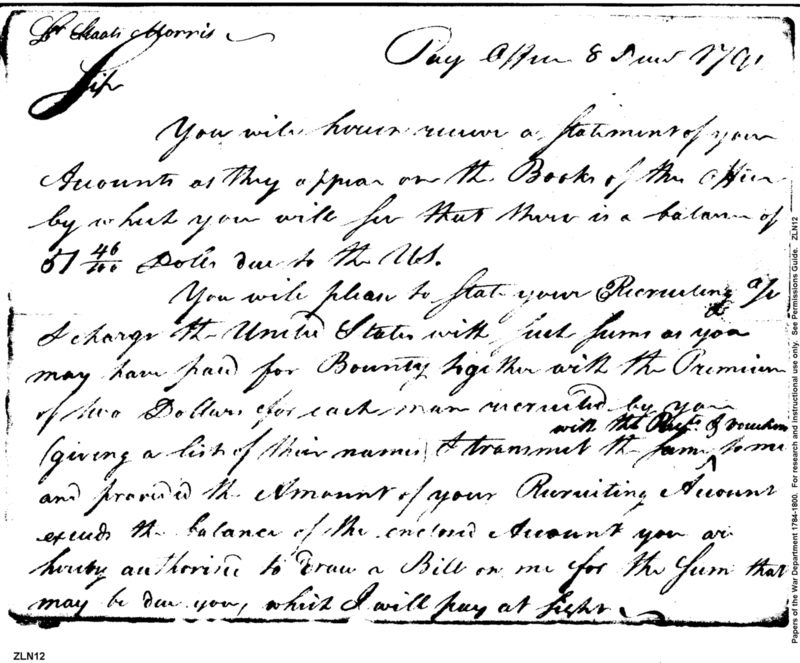 Lt. Staats Morris
Pay Office 8 June 1791
Sir
You will herein receive a Statement of your
Accounts as they appear on the Books of this Office
by which you will see that there is a balance of
51 46/100 Dolls due to the U.S.
You will please to State your Recruiting a/c
& charge the United States with such sums as you
may have paid for Bounty together with the Premium
of two Dollars for each man recruited by you
with the Rects. & vouchers
(giving a list of their names) & transmit the same to me
and provided the Amount of your Recruiting Account
exceeds the balance of the enclosed Account you are
hereby authorised to draw a Bill on me for the Sum that
may be due you, which I will pay at Sight
Papers of the War Department 1784-1800. For research and instructional use only. See Permissions Guide. ZLN12
ZLN12